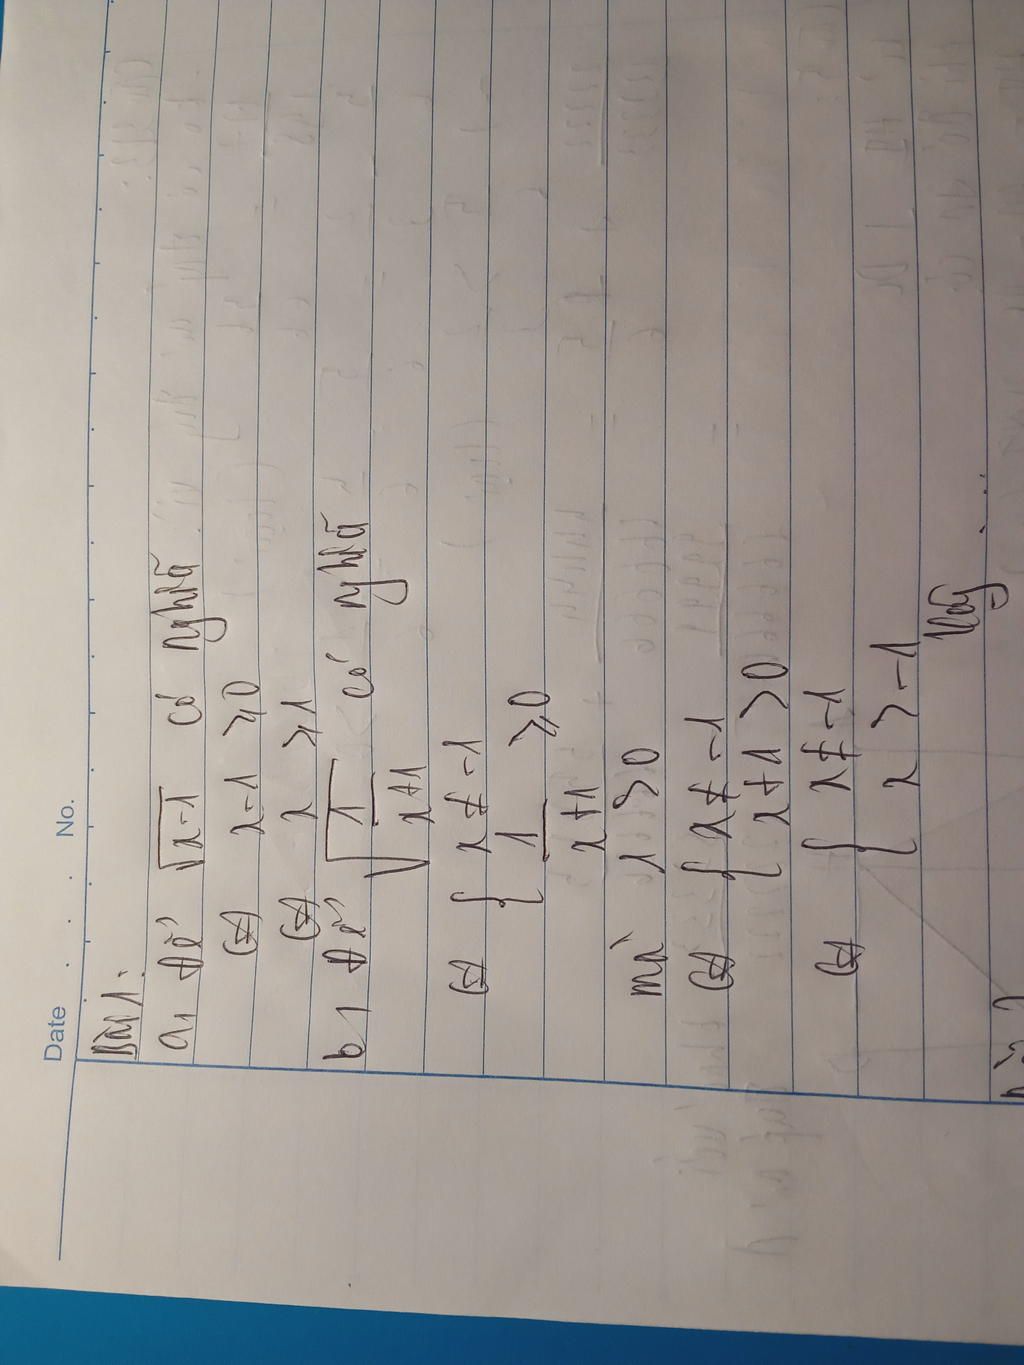 Date No.
Bài 1.
a, Để √x-1 có nghĩa
⇔ x-1 ≥ 0
⇔ x ≥ 1
b, Để √1/x+1 có nghĩa
⇔ { x ≠ -1
1/x+1 ≥ 0
mà 1 > 0
⇔ { x ≠ -1
x+1 > 0
⇔ { x ≠ -1
x > -1